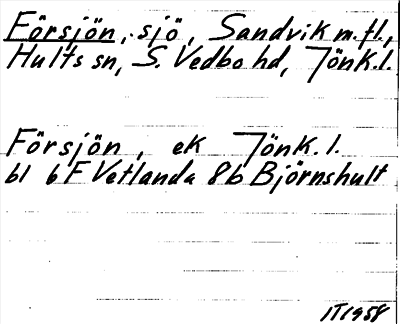 Försjön, sjö, Sandvik m.fl.,
Hults sn, S. Vedbo hd, Jönk.l.
Försjön, ek Jönk.l.
bl 6F Vetlanda 8b Björnshult
IT1958